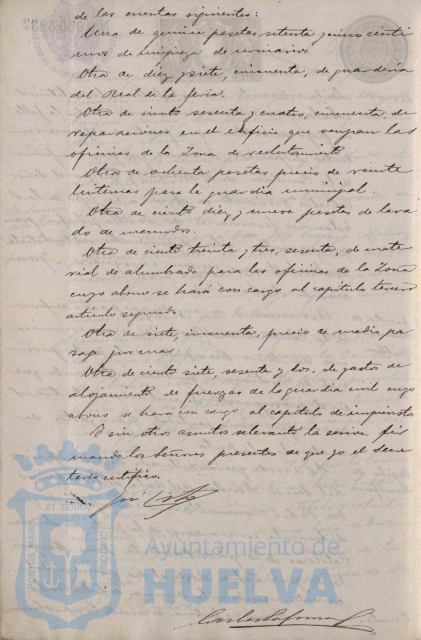 de las cuentas siguientes:
Una de quince pesetas setenta y cinco centi
mos de limpieza de urinarios.
Otra de diez y siete, cincuenta, de guardería
del Real de la feria.
Otra de ciento sesenta y cuatro, cincuenta, de
reparaciones en el edificio que ocupan las
oficinas de la Zona de reclutamiento
Otra de ochenta pesetas precio de veinte
linternas para la guardia municipal.
Otra de ciento diez y nueve pesetas de lava
do de
Otra de ciento treinta y tres, sesenta, de mate
rial de alumbrado para las oficinas de la Zona
cuyo abono se hará con cargo al capítulo tercero
artículo segundo.
Otra de siete, cincuenta, precio de medio pa
saje por mar.
Otra de ciento siete, sesenta y dos, de gastos de
alojamiento de fuerzas de la guardia civil cuyo
abono se hará con cargo al capítulo de imprevistos
Y sin otros asuntos se levantó la sesión fir
mando los Señores presentes de que yo el Secre
tario certifico.
José
Ayuntamiento de
HUELVA
PORTUS MARIS
ET TERRAE
CUSTODIA